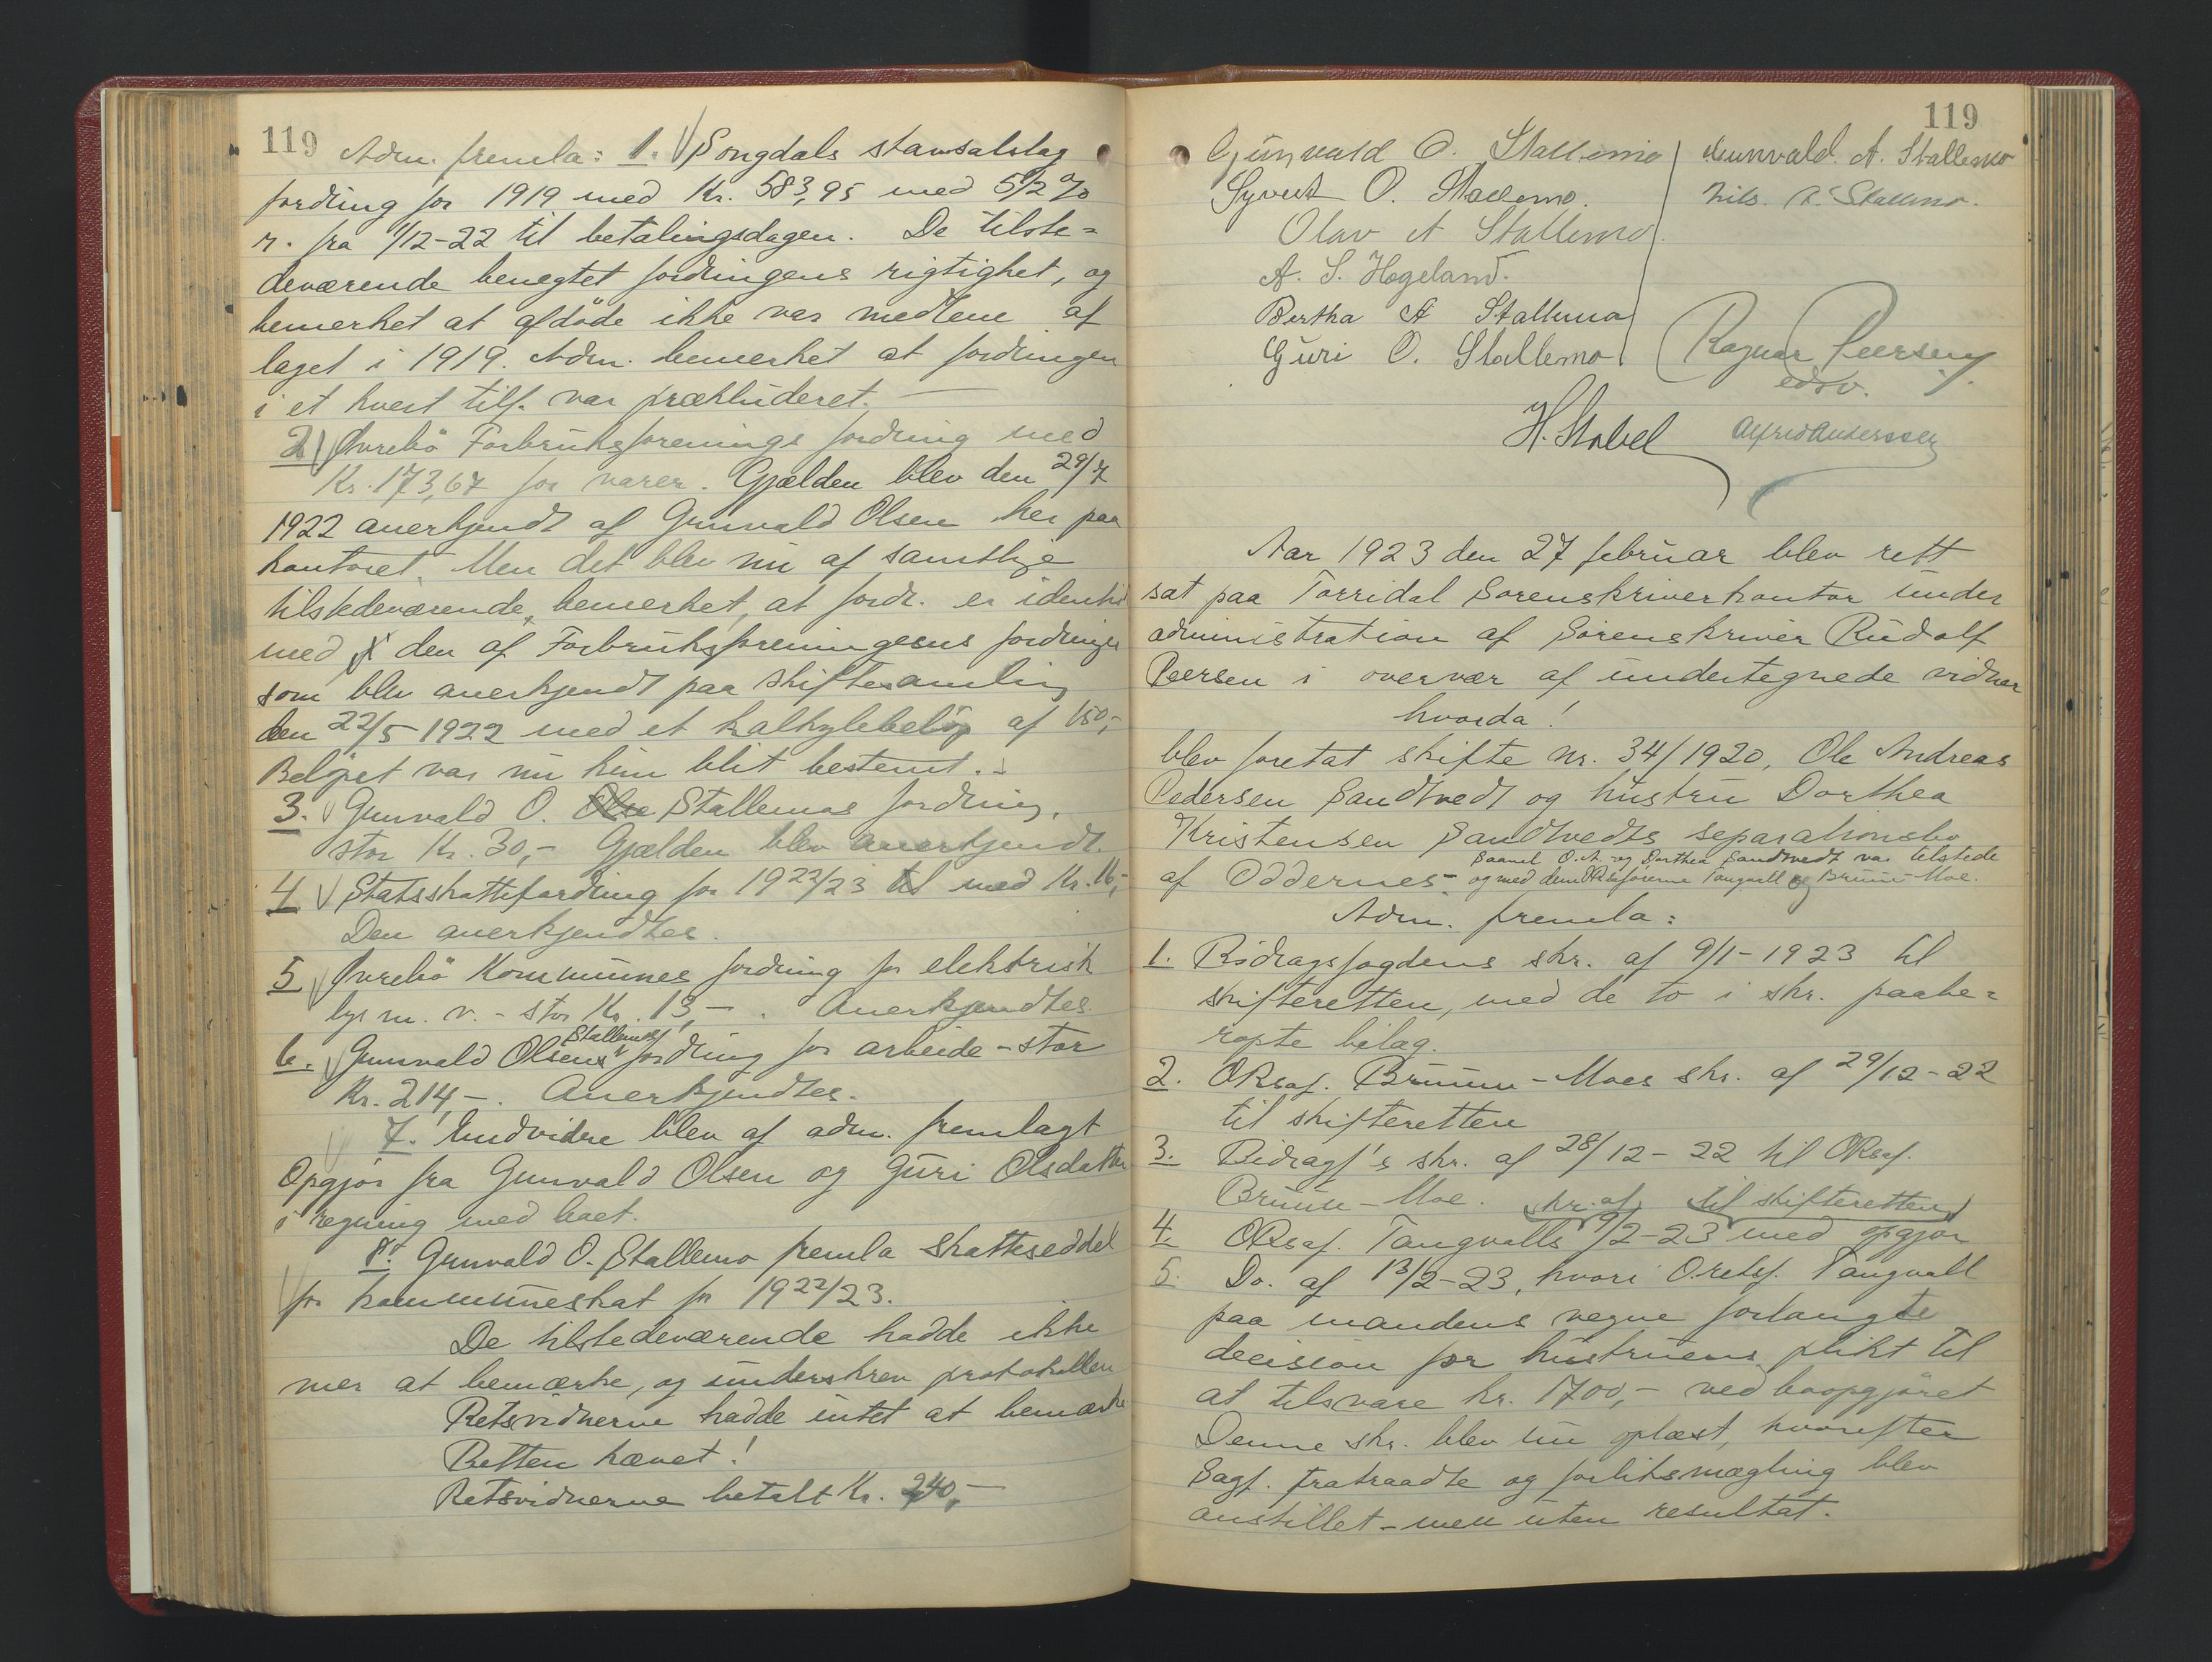 119
Adm. fremla: 1. Songdals stamsalslag
fordring for 1919 med Kr. 583,95 med 5½ %
r. fra 1/12-22 til betalingsdagen. De tilste=
deværende benegtet fordringens rigtighet, og
bemerket at afdöde ikke var medlem af
laget i 1919. Adm. bemerket at fordringen
i et hvert tilf. var prækluderet. —
2. Øvrebö Forbruksforenings fordring med
Kr. 173,67 for varer. Gjælden blev den 29/7
1922 anerkjendt af Gunvald Olsen her paa
kontoret. Men det blev nu af samtlige
tilstedeværende bemerket, at fordr. er identisk
med den af Forbruksforeningens fordringer
som blev anerkjendt paa skiftesamling
den 22/5 1922 med et kalkylebeløp af 150,-
Beløpet var nu kun blit bestemt. -
3. Gunvald O. Olse Stallemos fordring,
stor Kr. 30,- Gjælden blev anerkjendt.
4 Statsskattefordring for 1922/23 til med Kr. 16,-
Den anerkjendtes.
5 Øvrebö Kommunes fordring for elektrisk
lys m. v. - stor Kr. 13,- . Anerkjendtes.
6. Gunvald Olsens Stallemos fordring for arbeide - stor
Kr. 214,-. Anerkjendtes.
7. Endvidre blev af adm. fremlagt
Opgjör fra Gunvald Olsen og Guri Olsdatter
i regning med boet.
8. Gunvald O. Stallemo fremla skatteseddel
for kommuneskat for 1922/23.
De tilstedeværende hadde ikke
mer at bemærke, og underskrev protokollen
Retsvidnerne hadde intet at bemærke
Retten hævet!
Retsvidnerne betalt Kr. 240,-
119
Gunvald O. Stallemo
Gunvald. A. Stallemo
Syvert O. Stallemo.
Nils. A. Stallemo.
Olav A Stallemo.
A. S. Hogeland.
Bertha A Stallemo
Guri O. Stallemo
Ragnar Peersen
edsv.
H. Stabel
Alfred Anderssen
Aar 1923 den 27 februar blev rett
sat paa Torridal Sorenskriverkontor under
administration af Sorenskriver Rudolf
Peersen i overvær af undertegnede vidner
hvorda!
blev foretat skifte nr. 34/1920, Ole Andreas
Pedersen Sandtvedt og hustru Dorthea
Kristensen Sandtvedts separationsbo
af Oddernes. Saavel O. A. og Dorthea Sandtvedt var tilstede
og med dem ORsaførerne Tangvall og Bruun-Moe.
Adm. fremla:
1. Bidragsfogdens skr. af 9/1-1923 til
skifteretten, med de to i skr. paabe=
ropte bilag.
2. ORsaf. Bruun-Moes skr. af 29/12-22
til skifteretten
3. Bidragf's skr. af 28/12-22 til ORsaf.
Bruun-Moe.
4. ORsaf. Tangvalls skr. af 9/2-23 til skifteretten med opgjør
5. Do. af 13/2-23, hvori O.retsf. Tangvall
paa mandens vegne forlangte
decision for hustruens plikt til
at tilsvare kr. 1700,- ved boopgjöret
Denne skr. blev nu oplæst, hvorefter
Sagf. fratraadte og forliksmægling blev
anstillet - men uten resultat.